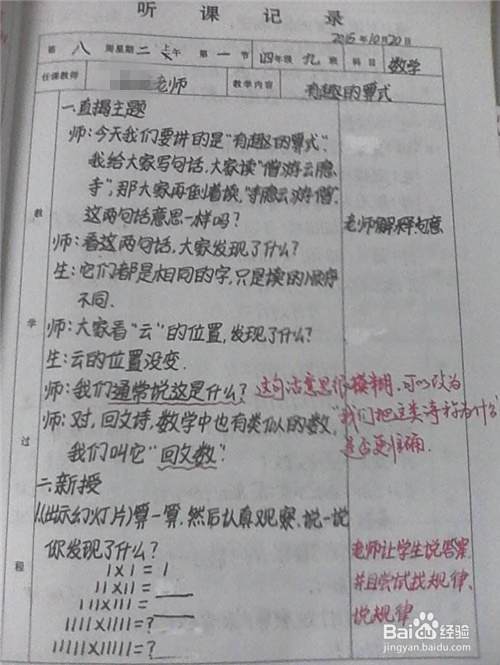 听课记录
2015年10月20日
第八周星期二上午 第一节 四年级九班 科目 数学
任课教师 老师 教学内容 有趣的算式
教学过程
一.直揭主题
师:今天我们要讲的是“有趣的算式”.
我给大家写句话,大家读“僧游云隐
寺”,那大家再倒着读,“寺隐云游僧”.
这两句话意思一样吗?
老师解释句意
师:看这两句话,大家发现了什么?
生:它们都是相同的字,只是读的顺序
不同.
师:大家看“云”的位置,发现了什么?
生:云的位置没变.
师:我们通常说这是什么?
这句话意思很模糊,可以改为
“我们把这类诗称为什么”
是否更准确.
师:对,回文诗,数学中也有类似的数,
我们叫它“回文数”.
二.新授
1.(出示幻灯片)算一算,然后认真观察,说一说
你发现了什么?
1×1=1
11×11=
111×111=
1111×1111=?
11111×11111=?
老师让学生说答案
并且尝试找规律、
说规律
Baidu经验
jingyan.baidu.com